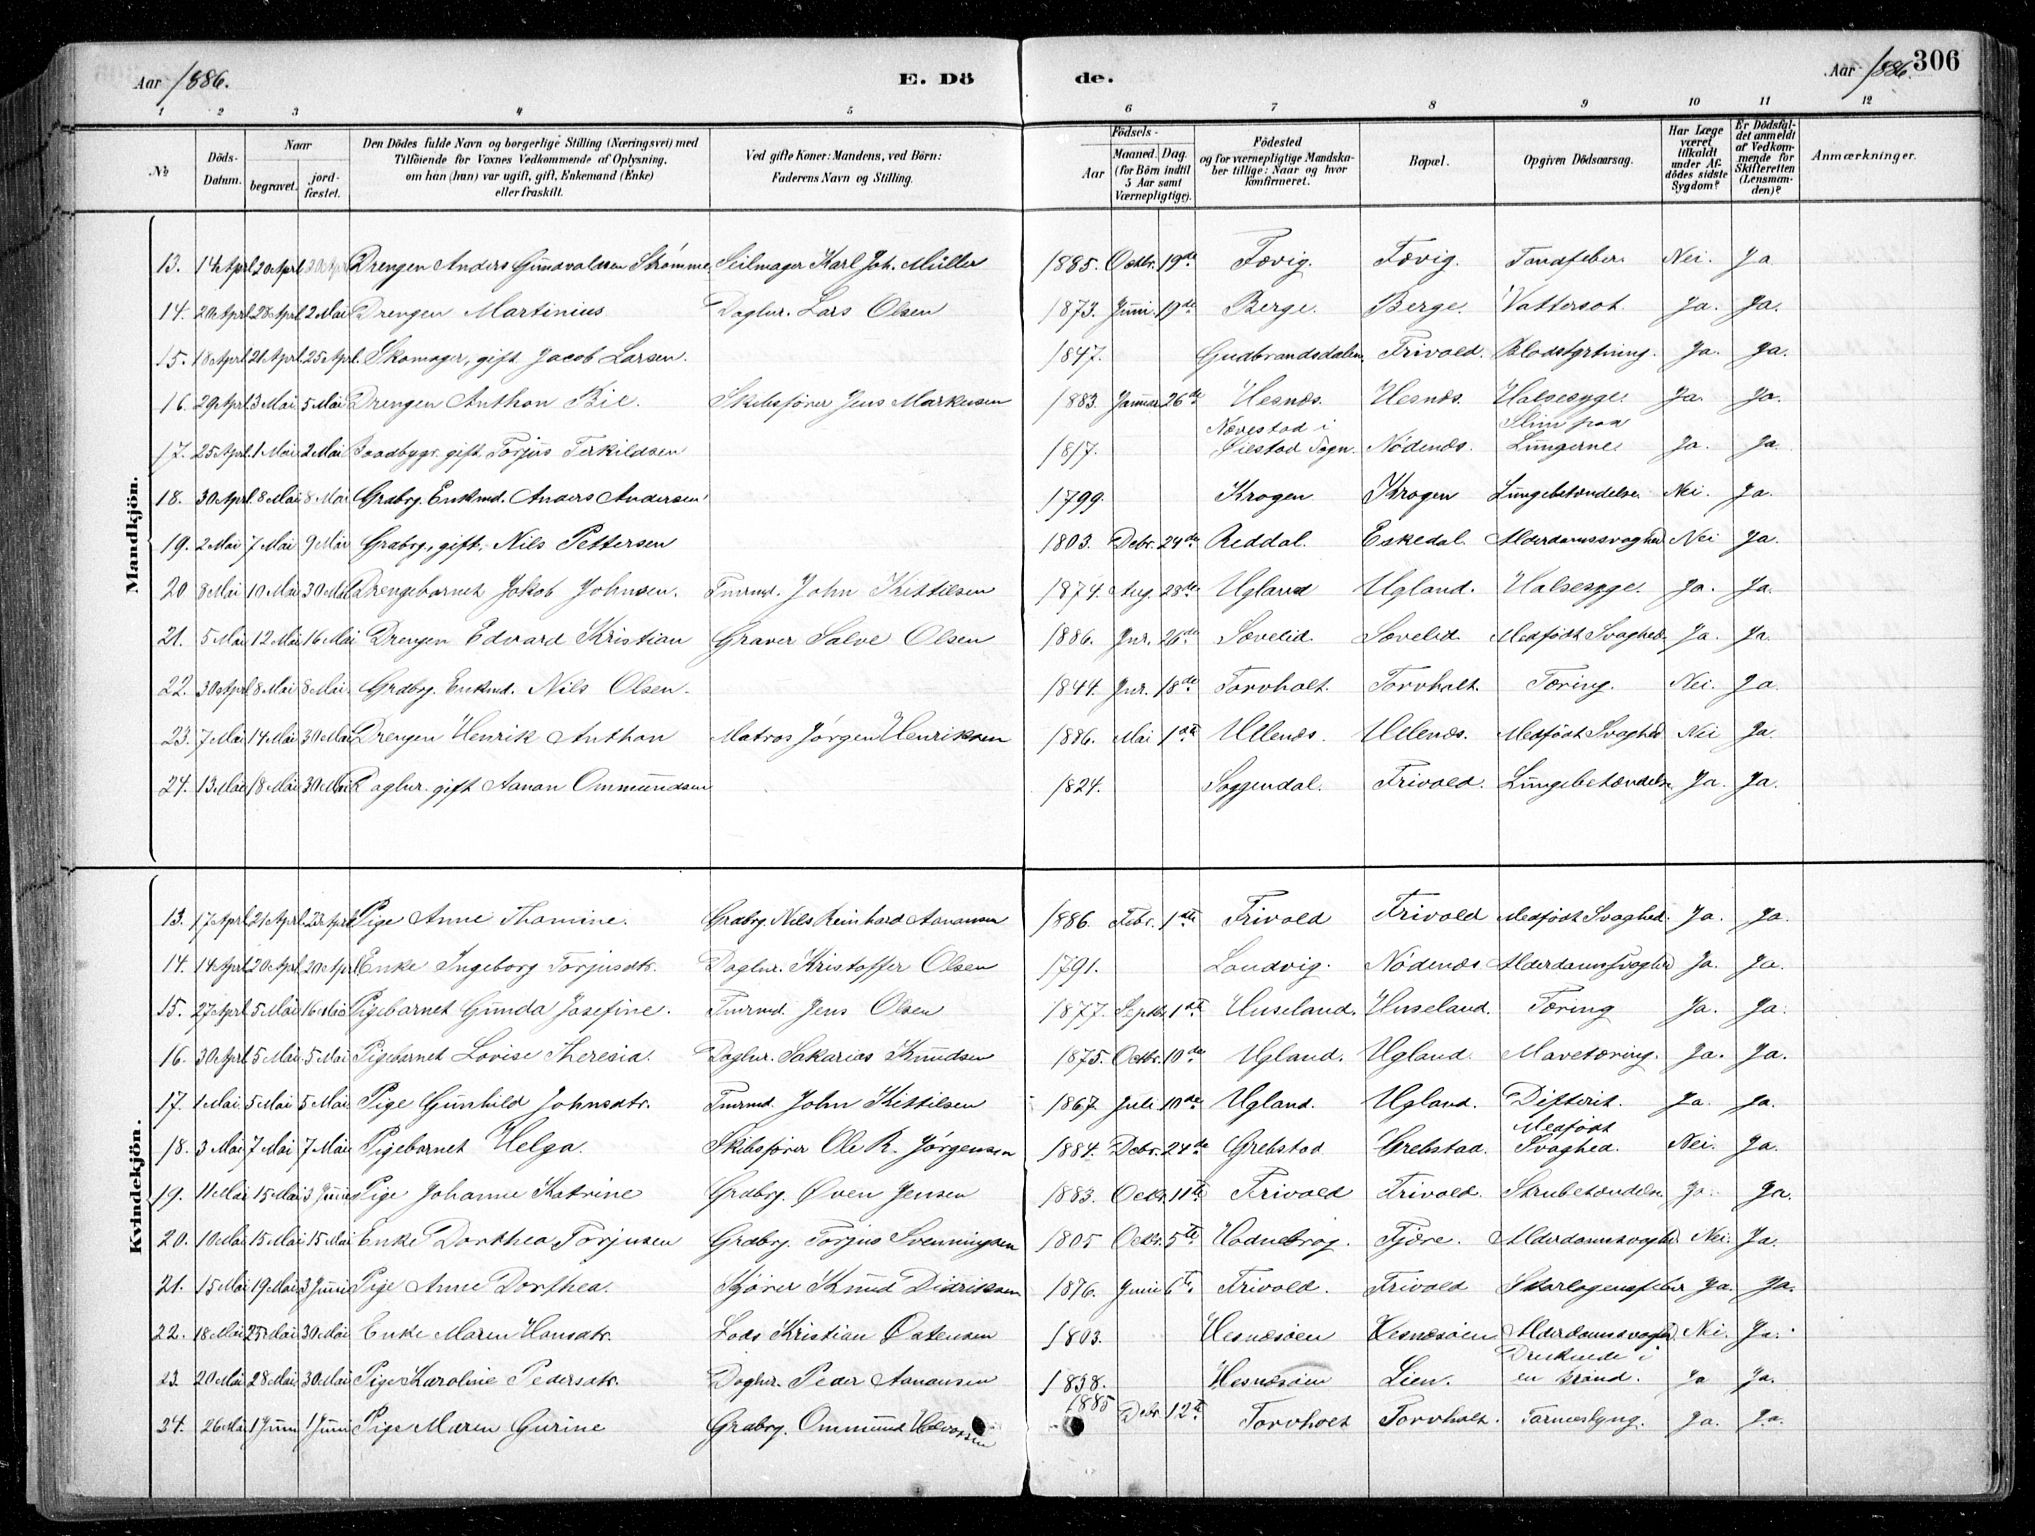 Aar 1886. E. Dö de. Aar 1886. 306
1 2 3 4 5 6 7 8 9 10 11 12
№ Döds-Datum. Naar begravet. jordfæstet. Den Dödes fulde Navn og borgerlige Stilling (Næringsvei) med Tilföiende for Voxnes Vedkommende af Oplysning, om han (hun) var ugift, gift, Enkemand (Enke) eller fraskilt. Ved gifte Koner: Mandens, ved Börn: Faderens Navn og Stilling. Födsels- Aar Maaned. Dag. (for Börn indtil 5 Aar samt Værnepligtige). Födested og for værnepligtige Mandskaber tillige: Naar og hvor konfirmeret. Bopæl. Opgiven Dödsaarsag. Har Læge været tilkaldt under Afdödes sidste Sygdom? Er Dödsfaldet anmeldt af Vedkommende for Skifteretten (Lensmanden)? Anmærkninger.
Mandkjön.
13. 14 Aprl 20 Aprl 20 Aprl Drengen Anders Gundvaldsen Strømme Seilmager Karl Joh. Müller 1885. Octbr. 19de Fævig. Fævig. Tandfeber. Nei. Ja
14. 20 Aprl 28 Aprl 2 Mai Drengen Martinius Daglnr. Lars Olsen 1873. Juni. 19de Berge. Berge. Vattersot. Ja. Ja.
15. 18 Aprl 21 Aprl 25 Aprl. Skomager, gift Jacob Larsen. 1847. Gudbrandsdalen. Frivold. Blodstyrtning. Ja. Ja.
16. 29 Aprl 3 Mai 5 Mai Drengen Anthon Bie. Skibsfører Jens Markusen 1883. Januar 26de Hesnæs. Hesnæs. Halsesyge. Ja. Ja.
17. 25 Aprl 1 Mai 2 Mai Baadbygr. gift Torjus Terkildsen 1817. Nævestad i Øiestad Sogn. Nødenæs. Slim paa Lungerne Ja. Ja
18. 30 Aprl 8 Mai 8 Mai Grdbrg. Enkmd. Anders Andersen 1799. Krogen Krogen Lungebetændelse Nei. Ja.
19. 2 Mai 7 Mai 9 Mai Grdbrg., gift, Nils Pettersen 1803. Debr. 24de Reddal. Eskedal. Alderdomssvaghed Nei Ja.
20 8 Mai 10 Mai 30 Mai Drengebarnet Jakob Johnsen. Tmrmd. John Kittilsen 1874. Aug. 28de Ugland Ugland. Halsesyge. Ja. Ja.
21. 5 Mai 12 Mai 16 Mai Drengen Edvard Kristian Graver Salve Olsen 1886. Jnr. 26de Sævelid. Sævelid. Medfødt Svaghed. Ja. Ja.
22. 30 Aprl 8 Mai 8 Mai. Grdbrg. Enkmd. Nils Olsen. 1844. Jnr. 18de Torvholt. Torvholt. Tæring. Nei. Ja.
23. 7 Mai 14 Mai 30 Mai Drengen Henrik Anthon Matros Jørgen Henriksen 1886. Mai 1ste Ullenæs. Ullenæs. Medfødt Svaghed Nei Ja.
24. 13 Mai 18 Mai 30 Mai Daglnr. gift Aanon Ommundsen 1824. Soggendal. Frivold. Lungebetændelse Ja. Ja.
Kvindekjön.
13. 17 Aprl 21 Aprl 23 Aprl Pige Anne Thomine. Grdbrg. Nils Reinhard Aanansen 1886. Febr. 1ste Frivold Frivold Medfødt Svaghed. Ja. Ja.
14. 14 Aprl 20 Aprl 20 Aprl Enke Ingeborg Torjusdtr. Daglnr. Kristoffer Olsen 1791. Landvig. Nødenæs Alderdomssvaghed Ja. Ja.
15. 27 Aprl 5 Mai 16 Mai Pigebarnet Gunda Josefine. Tmrmd. Jens Olsen 1877. Septbr. 1ste Huseland. Huseland. Tæring Ja. Ja.
16. 30 Aprl 5 Mai. 5 Mai. Pigebarnet Lovise Theresia. Daglnr. Sakarias Knudsen 1875. Octbr. 10de Ugland. Ugland. Mavetæring. Ja. Ja.
17. 1 Mai 5 Mai 5 Mai Pige Gunhild Johnsdtr. Tmrmd. John Kittilsen 1867 Juli. 10de Ugland. Ugland. Difterit. Ja. Ja.
18. 3 Mai 7 Mai 7 Mai Pigebarnet Helga. Skibsfører Ole R. Jørgensen 1884. Debr. 24de Grebstad Grebstad. Medfødt Svaghed. Nei. Ja.
19. 11 Mai 15 Mai 3 Juni Pige Johanne Katrine Grdbrg. Øven Jensen 1883. Octbr. 11te Frivold Frivold. Strubetændelse Ja. Ja.
20. 10 Mai 15 Mai 15 Mai Enke Dorthea Torjusen Grdbrg. Torjus Svenningsen 1805 Octbr. 5te Hodnebrog. Fjære. Alderdomssvaghed Nei. Ja.
21. 15 Mai 19 Mai 3 Juni Pige Anne Dorthea. Kjører Knud Didriksen 1876. Juni 6te Frivold. Frivold Skarlagensfeber Ja. Ja.
22. 18 Mai 25 Mai 30 Mai Enke Maren Hansdtr. Lods Kristian Østensen 1803. Hesnæsøen Hesnæsøen Alderdomssvaghed Nei. Ja.
23. 20 Mai 28 Mai 30 Mai Pige Karoline Pedersdtr. Daglnr. Peder Aanansen 1838. Hesnæsøen Lien. Druknede i en Brønd. Ja Ja.
24. 26 Mai 1 Juni 1 Juni Pige Maren Gurine Grdbrg. Ommund Halvorsen 1885 Debr. 12te Torvholt Torvholt. Tarmeslyng. Ja. Ja.